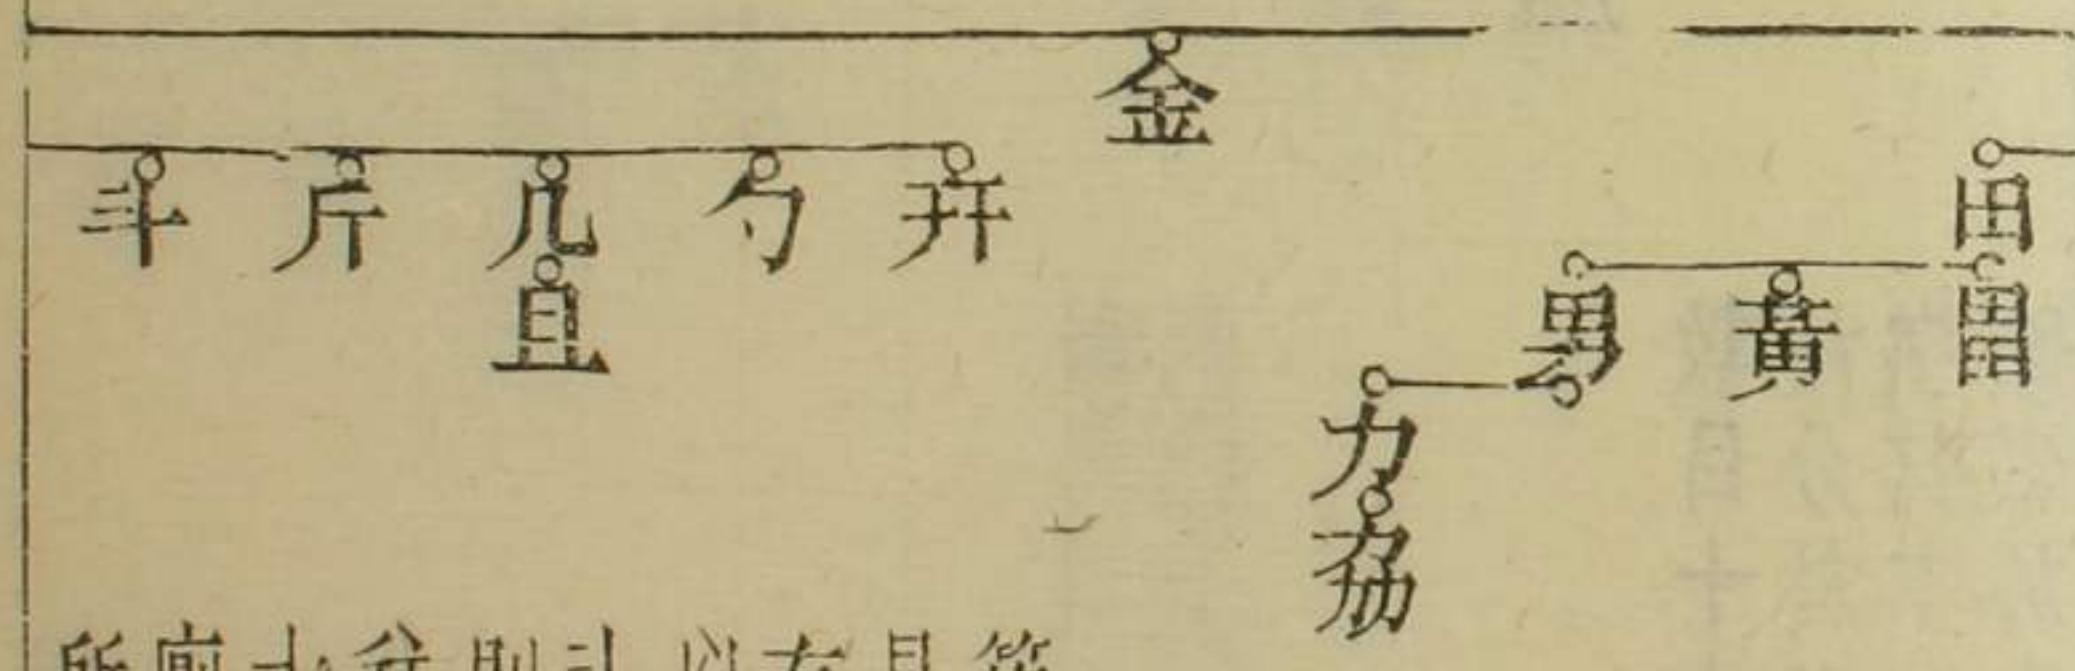 田
畕
黃
男
力
劦
金
幵
勺
几
且
斤
斗